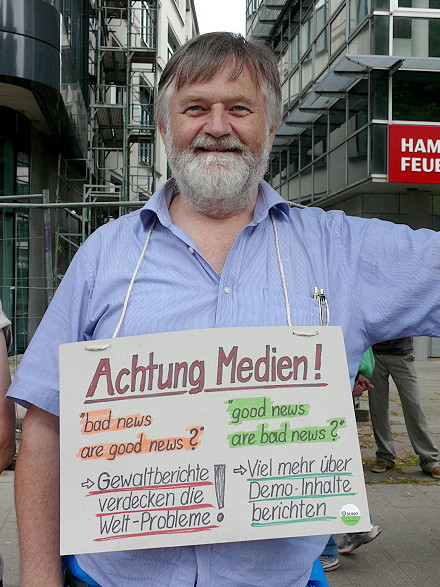 Achtung Medien!
"bad news
are good news?"
→ Gewaltberichte
verdecken die
Welt-Probleme!
"good news
are bad news?"
→ Viel mehr über
Demo-Inhalte
berichten
BUND
HAM
FEUE